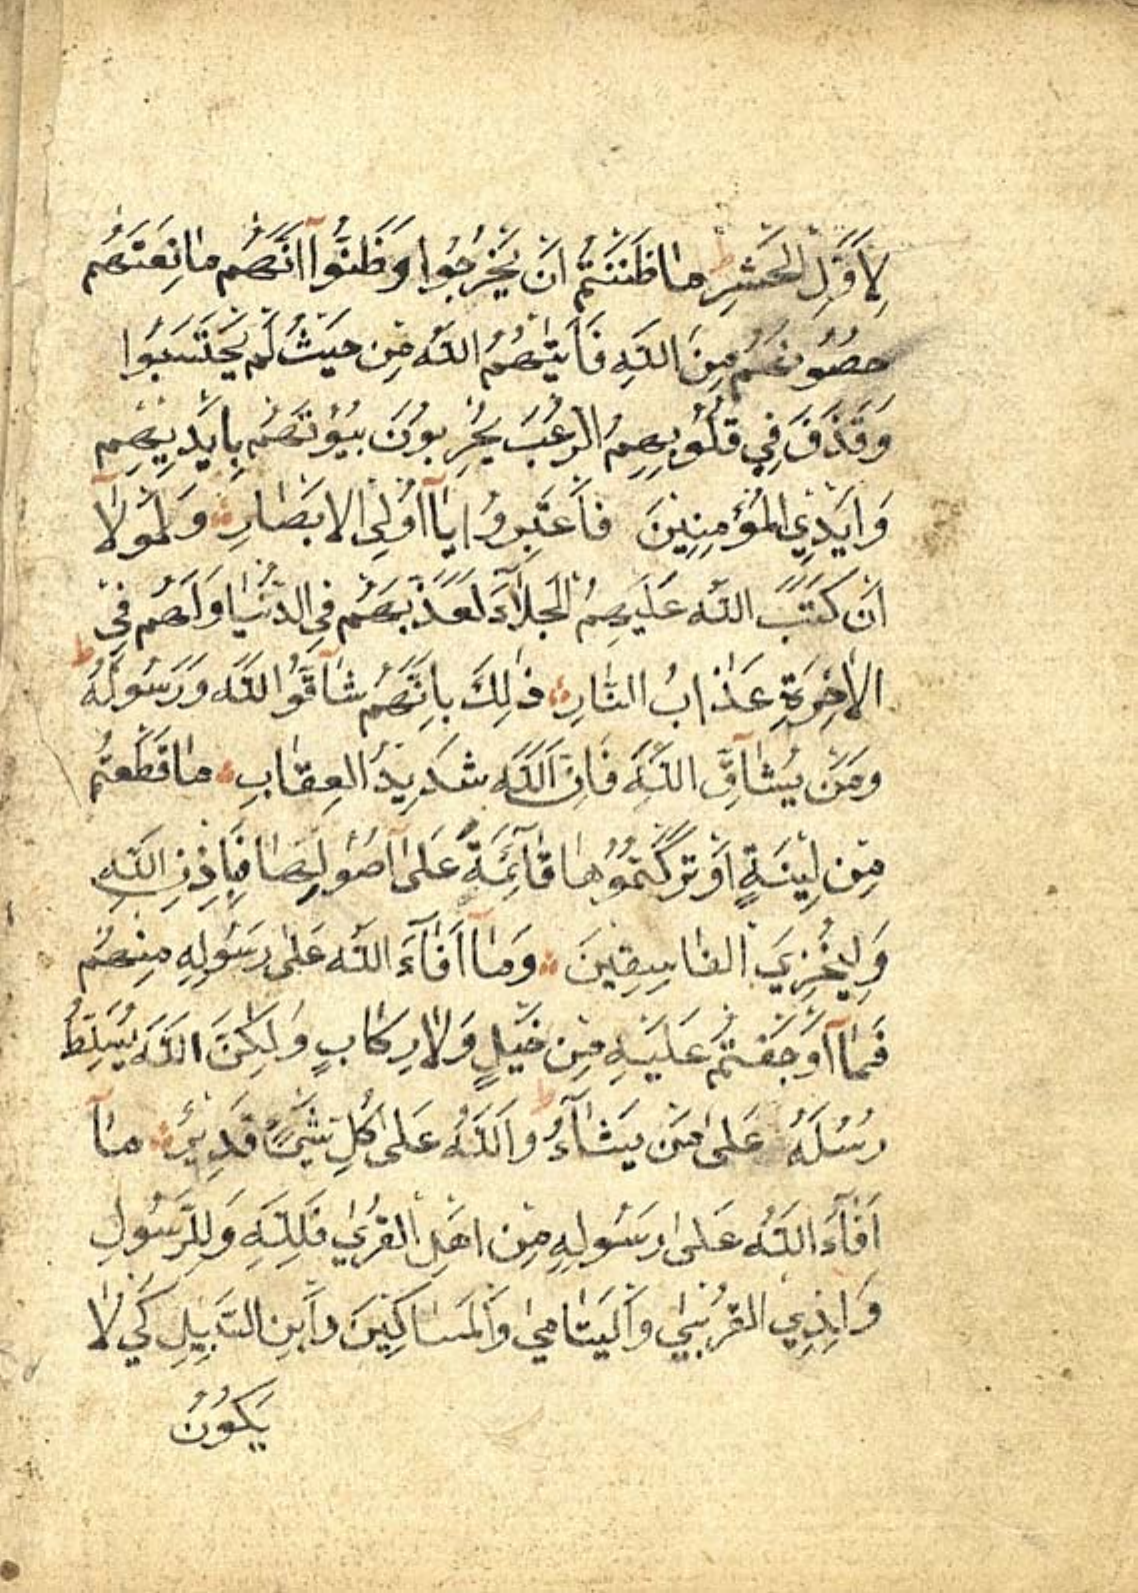 لِاَوَّلِ الْحَشْرِ ط مٰا ظَنَنْتُمْ اَنْ يَخْرُجُوا وَظَنُّوٓا اَنَّهُمْ مٰانِعَتُهُمْ
حُصُونُهُمْ مِنَ اللّٰهِ فَاَتٰيهُمُ اللّٰهُ مِنْ حَيْثُ لَمْ يَحْتَسِبُوا
وَقَذَفَ فِي قُلُوبِهِمُ الرُّعْبَ يُخْرِبُونَ بُيُوتَهُمْ بِاَيْدِيهِمْ
وَاَيْدِي الْمُؤْمِنِينَ فَاعْتَبِرُوا يٰٓا اُولِي الْاَبْصٰارِ وَلَوْلٰٓا
اَنْ كَتَبَ اللّٰهُ عَلَيْهِمُ الْجَلٰٓاءَ لَعَذَّبَهُمْ فِي الدُّنْيٰا وَلَهُمْ فِي
الْاٰخِرَةِ عَذٰابُ النّٰارِ ذٰلِكَ بِاَنَّهُمْ شٰٓاقُّوا اللّٰهَ وَرَسُولَهُ ط
وَمَنْ يُشٰٓاقِّ اللّٰهَ فَاِنَّ اللّٰهَ شَدِيدُ الْعِقٰابِ مٰا قَطَعْتُمْ
مِنْ لِينَةٍ اَوْ تَرَكْتُمُوهٰا قٰٓائِمَةً عَلىٰٓ اُصُولِهٰا فَبِاِذْنِ اللّٰهِ
وَلِيُخْزِيَ الْفٰاسِقِينَ وَمٰٓا اَفٰٓاءَ اللّٰهُ عَلىٰ رَسُولِهِ مِنْهُمْ
فَمٰٓا اَوْجَفْتُمْ عَلَيْهِ مِنْ خَيْلٍ وَلٰا رِكٰابٍ وَلٰكِنَّ اللّٰهَ يُسَلِّطُ
رُسُلَهُ عَلىٰ مَنْ يَشٰٓاءُ ط وَاللّٰهُ عَلىٰ كُلِّ شَيْءٍ قَدِيرٌ مٰٓا
اَفٰٓاءَ اللّٰهُ عَلىٰ رَسُولِهِ مِنْ اَهْلِ الْقُرىٰ فَلِلّٰهِ وَلِلرَّسُولِ
وَلِذِي الْقُرْبىٰ وَالْيَتٰامىٰ وَالْمَسٰاكِينَ وَابْنِ السَّبِيلِ كَيْ لٰا
يَكُونَ